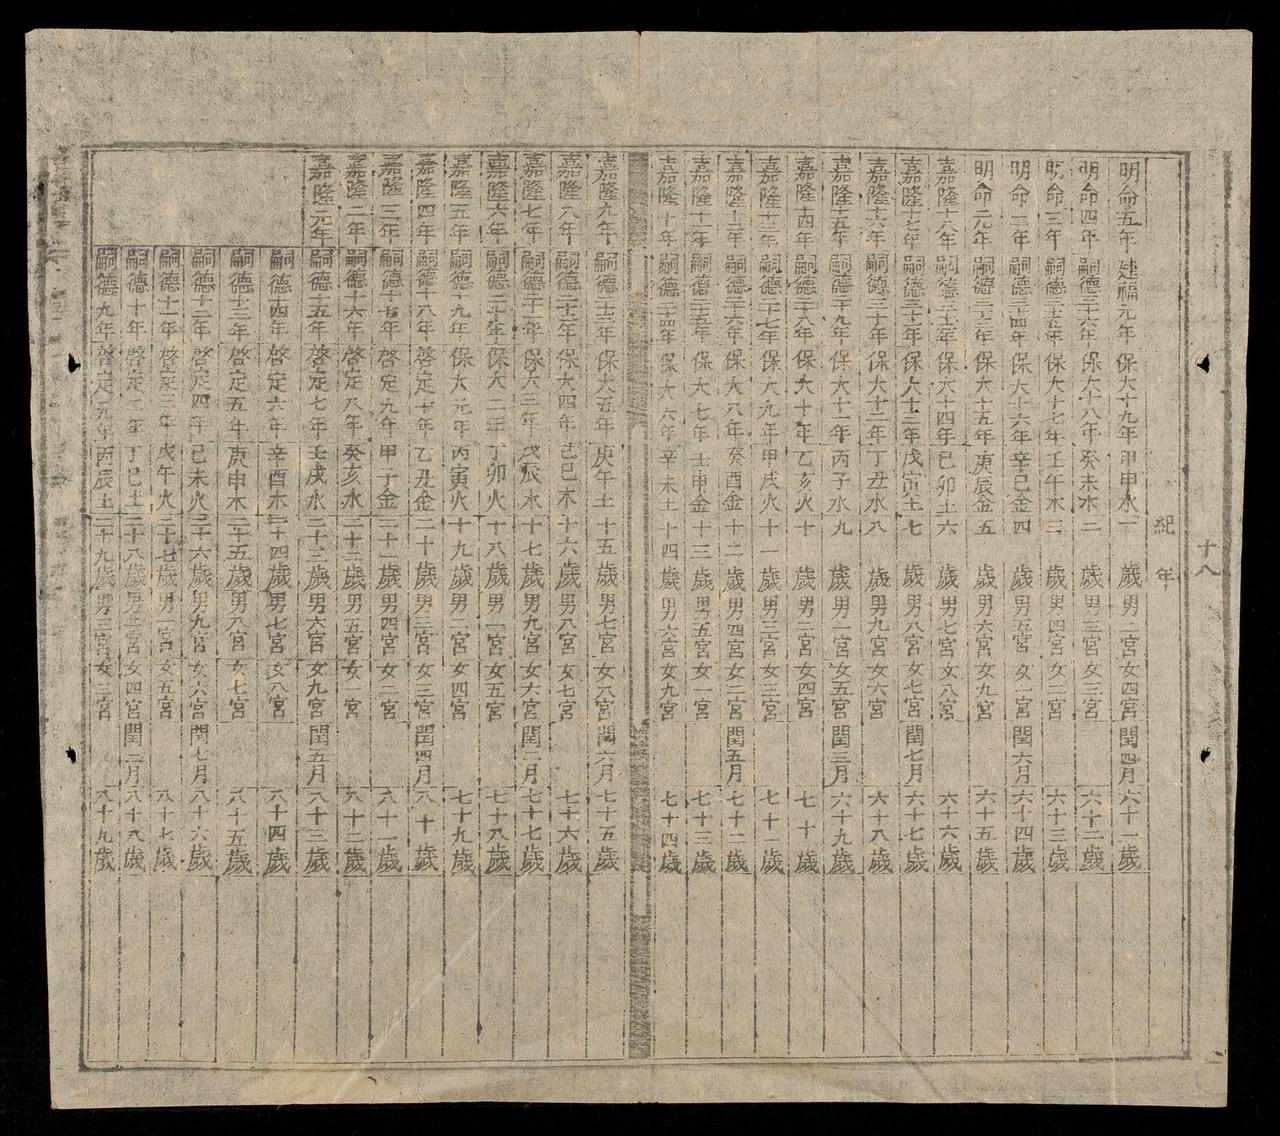 十八
紀年
明命五年建福元年保大十九年甲申水一歲男二宮女四宮閏四月六十一歲
明命四年嗣德三十六年保大十八年癸未木二歲男三宮女三宮六十二歲
明命三年嗣德三十五年保大十七年壬午木三歲男四宮女二宮六十三歲
明命二年嗣德三十四年保大十六年辛巳金四歲男五宮女一宮閏六月六十四歲
明命元年嗣德三十三年保大十五年庚辰金五歲男六宮女九宮六十五歲
嘉隆十八年嗣德三十二年保大十四年己卯土六歲男七宮女八宮六十六歲
嘉隆十七年嗣德三十一年保大十三年戊寅土七歲男八宮女七宮閏七月六十七歲
嘉隆十六年嗣德三十年保大十二年丁丑水八歲男九宮女六宮六十八歲
嘉隆十五年嗣德二十九年保大十一年丙子水九歲男一宮女五宮閏三月六十九歲
嘉隆十四年嗣德二十八年保大十年乙亥火十歲男二宮女四宮七十歲
嘉隆十三年嗣德二十七年保大九年甲戌火十一歲男三宮女三宮七十一歲
嘉隆十二年嗣德二十六年保大八年癸酉金十二歲男四宮女二宮閏五月七十二歲
嘉隆十一年嗣德二十五年保大七年壬申金十三歲男五宮女一宮七十三歲
嘉隆十年嗣德二十四年保大六年辛未土十四歲男六宮女九宮七十四歲
嘉隆九年嗣德二十三年保大五年庚午土十五歲男七宮女八宮閏六月七十五歲
嘉隆八年嗣德二十二年保大四年己巳木十六歲男八宮女七宮七十六歲
嘉隆七年嗣德二十一年保大三年戊辰木十七歲男九宮女六宮閏二月七十七歲
嘉隆六年嗣德二十年保大二年丁卯火十八歲男一宮女五宮七十八歲
嘉隆五年嗣德十九年保大元年丙寅火十九歲男二宮女四宮七十九歲
嘉隆四年嗣德十八年啓定十年乙丑金二十歲男三宮女三宮閏四月八十歲
嘉隆三年嗣德十七年啓定九年甲子金二十一歲男四宮女二宮八十一歲
嘉隆二年嗣德十六年啓定八年癸亥水二十二歲男五宮女一宮八十二歲
嘉隆元年嗣德十五年啓定七年壬戌水二十三歲男六宮女九宮閏五月八十三歲
嗣德十四年啓定六年辛酉木二十四歲男七宮女八宮八十四歲
嗣德十三年啓定五年庚申木二十五歲男八宮女七宮八十五歲
嗣德十二年啓定四年己未火二十六歲男九宮女六宮閏七月八十六歲
嗣德十一年啓定三年戊午火二十七歲男一宮女五宮八十七歲
嗣德十年啓定二年丁巳土二十八歲男二宮女四宮閏二月八十八歲
嗣德九年啓定元年丙辰土二十九歲男三宮女三宮八十九歲